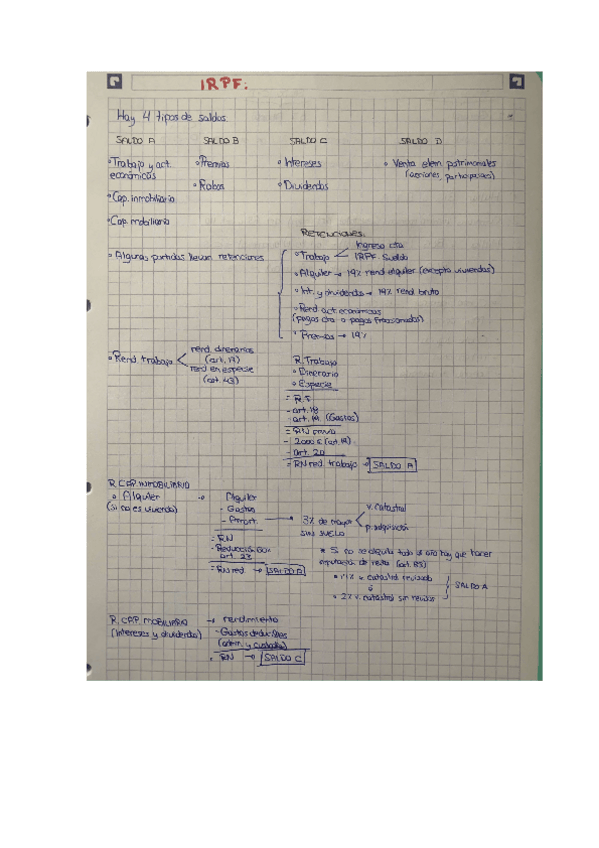 IRPF:
Hay 4 tipos de saldos
SALDO A SALDO B SALDO C SALDO D
Trabajo y act. económicas
Premios
Intereses
Venta elem. patrimoniales (acciones, participaciones)
Robos
Dividendos
Cap. inmobiliario
Cap. mobiliario
RETENCIONES:
Algunas partidas llevan retenciones
Trabajo
Ingreso cta
IRPF Sueldo
Alquiler → 19% rend alquiler (excepto viviendas)
Int. y dividendos → 19% rend bruto
Rend act. económicas
(pagos cta o pagos fraccionados)
Premios → 19%
Rend. trabajo
rend. dinerarios
(art. 17)
rend en especie
(art. 43)
R. Trabajo
Dinerario
Especie
- art. 18
- art. 19 (Gastos)
= RN previo
- 2000 € (art. 19)
- art. 20
= RN red. trabajo → SALDO A
R. CAP. INMOBILIARIO
Alquiler
(si no es vivienda)
→ Alquiler
- Gastos
- Amort. → 3% de mayor
SIN SUELO
v. catastral
p. adquisición
= RN
- Reducción 60%
art. 23
= RN red → SALDO A
* Si no se alquila todo el año hay que hacer
imputación de renta (art. 85)
v. catastral revisado
ó
2% v. catastral sin revisar
SALDO A
R. CAP. MOBILIARIO → rendimiento
(Intereses y dividendos)
- Gastos deducibles
(admin. y custodia)
RN → SALDO C